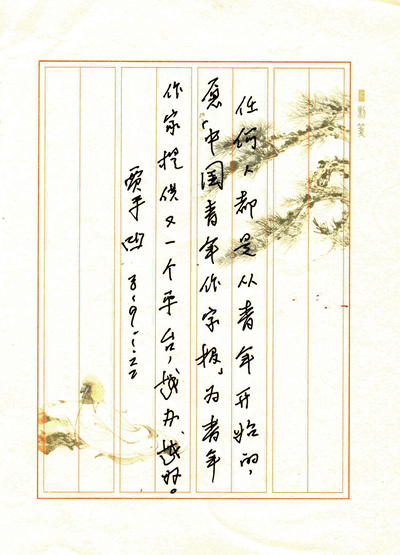 任何人都是从青年开始的，
愿「中国青年作家报」为青年
作家提供又一个平台，越办越好。
贾平凹